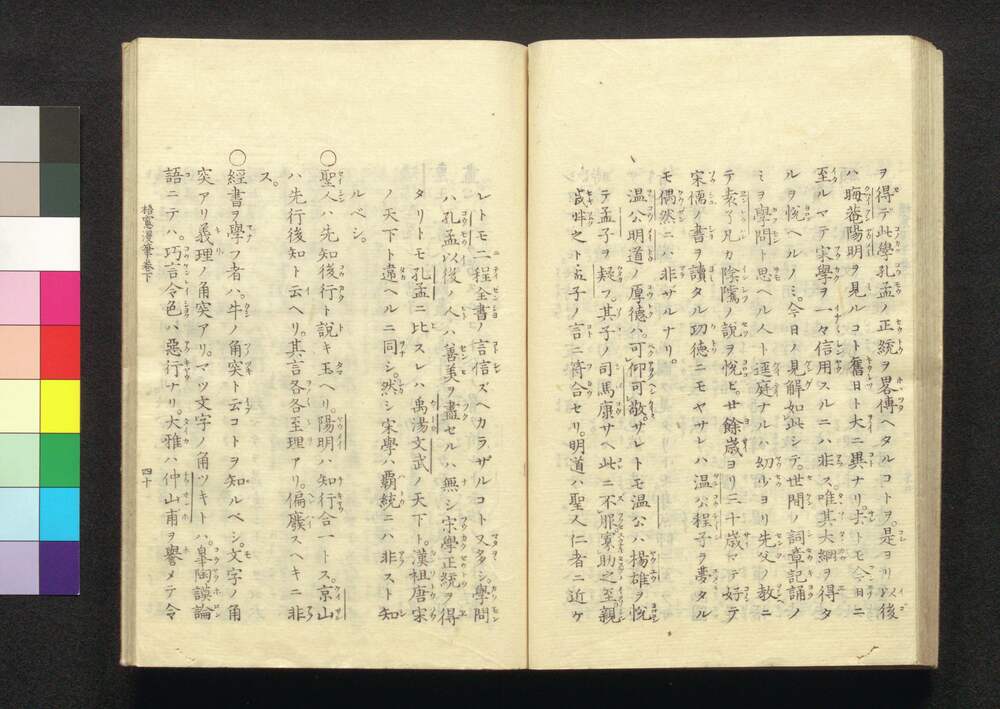 ヲ得テ此學孔孟ノ正統ヲ畧傳ヘタルコトヲ。是ヨリ〆後
ハ晦菴陽明ヲ見ルコト舊日ト大ニ異ナリ。トモ今日ニ
至ルマテ宋學ヲ一々信用スルニハ非ス。唯其大綱ヲ得タ
ルヲ悅ヘルノミ。今日ノ見解如此シテ。世間ノ詞章記誦ノ
ミヲ學問ト思ヘル人ト逕庭ナルハ幼少ヨリ先父ノ教ニ
テ袁了凡カ陰隲ノ說ヲ悅ヒ。廿餘歲ヨリ三十歲マテ好テ
宋儒ノ書ヲ讀タル功德ニモヤサレハ溫公程子ヲ夢タル
モ偶然ニハ非ザルナリ。
溫公明道ノ厚德ハ。可仰可敬。サレトモ溫公ハ揚雄ヲ悅
テ孟子ヲ疑フ。其子ノ司馬康サヘ此ニ不服寡助之至親
戚畔之ト孟子ノ言ニ符合セリ。明道ハ聖人仁者ニ近ケ
レトモ二程全書ノ言信ズヘカラザルコトヌタタシ。學問
ハ孔孟以後ノ人ハ善美ヲ盡セルハ無シ宋學正統ヲ得
タリトモ孔孟ニ比スレハ禹湯文武ノ天下ト。漢祖唐宋
ノ天下ト違ヘルニ同シ。然シ宋學ハ霸統ニハ非スト知
ルベシ。
○聖人ハ先知後行ト說キ玉ヘリ。陽明ハ知行合一トス。京山
ハ先行後知ト云ヘリ。其言各各至理アリ。偏癈スヘキニ非
ス。
○經書ヲ學フ者ハ。牛ノ角突ト云コトヲ知ルベシ。文字ノ角
突アリ義理ノ角突アリ。マツ文字ノ角ツキトハ。皋陶謨論
語ニテハ。巧言令色ハ惡行ナリ。大雅ハ仲山甫ヲ譽メテ令
梧窻漫筆卷下
四十